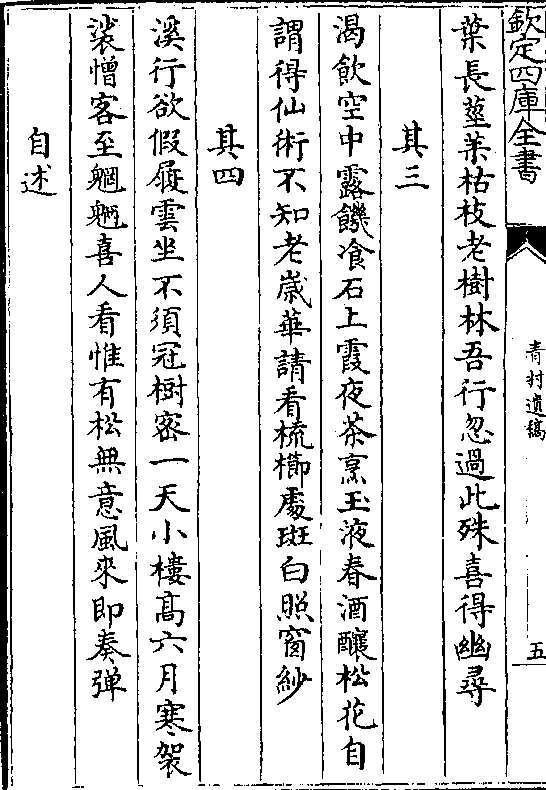 欽定四庫全書
青村遺稿
五
葉長莖茱枯枝老樹林吾行忽過此殊喜得幽尋
其三
渴飲空中露饑飡石上霞夜茶烹玉液春酒釀松花自
謂得仙術不知老歳華請看梳櫛處斑白照窗紗
其四
溪行欲假屐雲坐不須冠樹密一天小樓髙六月寒袈
裟憎客至魍魎喜人看惟有松無意風來即奏弹
自述